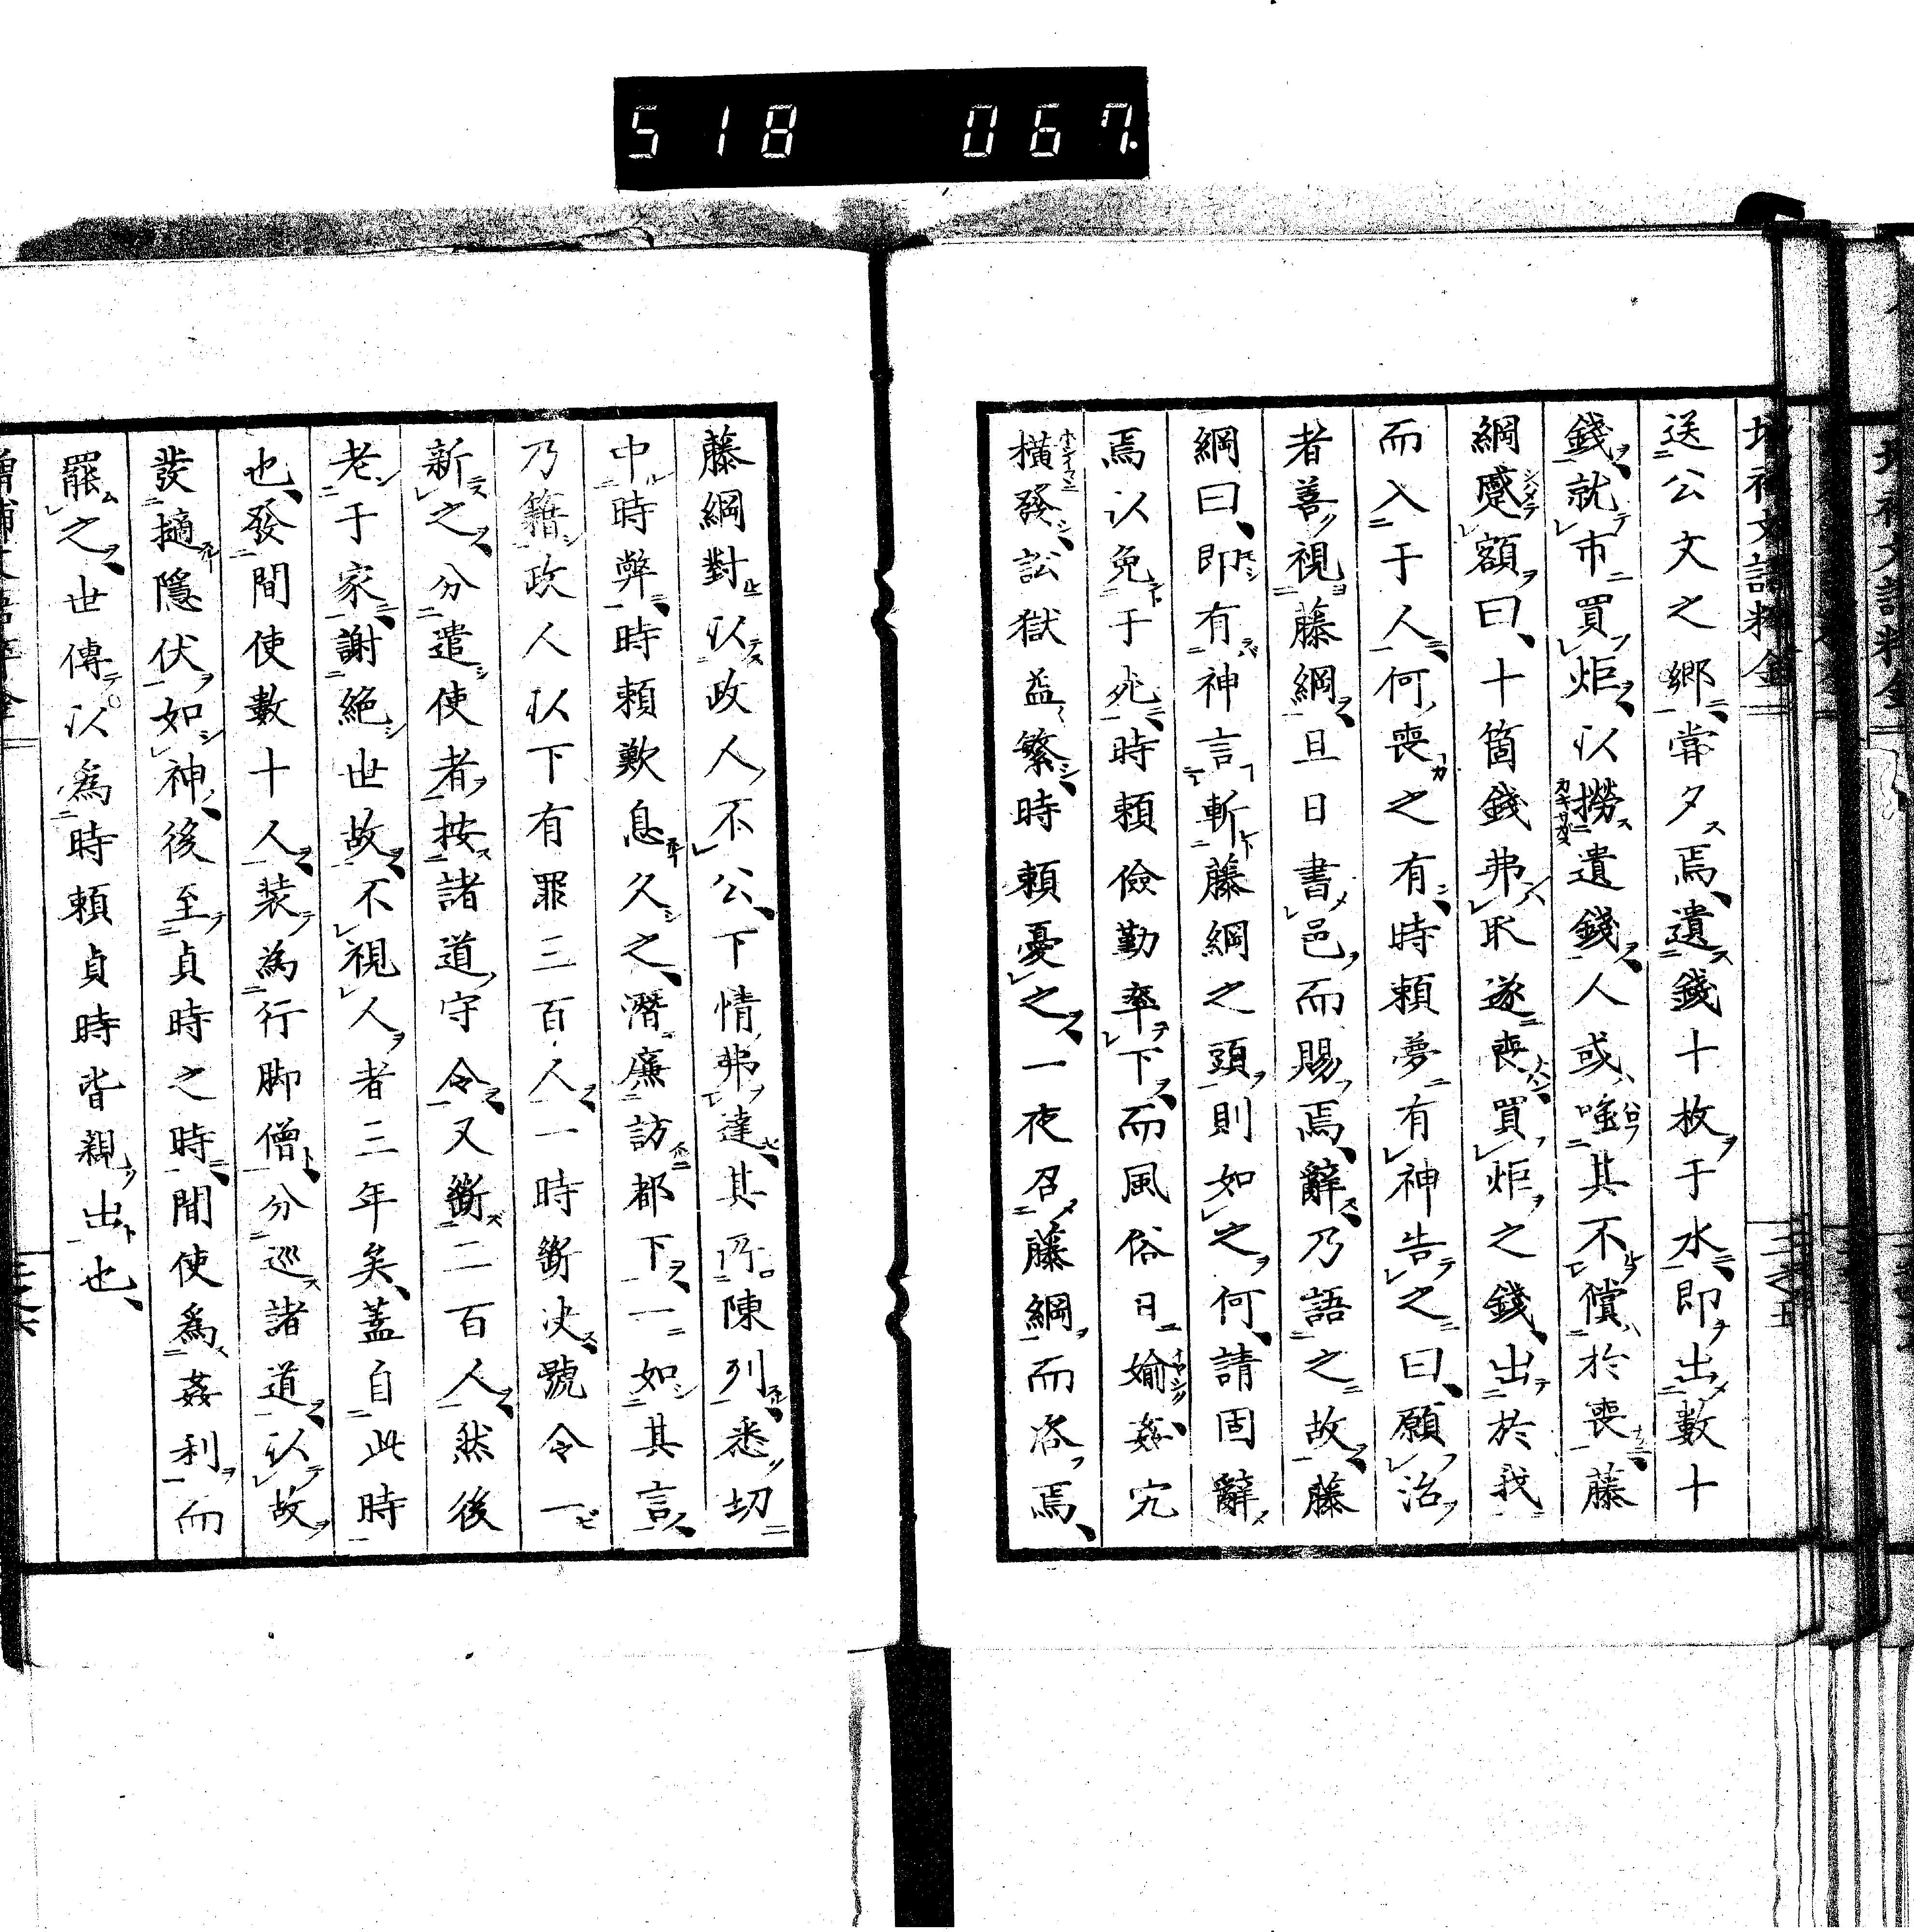 518 067.
送公文之鄉嘗夕焉遺錢十枚于水即出數十
錢就市買炬以撈遺錢人或嗤其不償於喪藤
綱蹙額曰十箇錢弗取遂喪買炬之錢出於我
而入于人何喪之有時賴夢有神告之曰願治
者善視藤綱旦日書邑而賜焉辭乃語之故藤
綱曰即有神言斬藤綱之頭則如之何請固辭
焉以免于死時賴儉勤率下而風俗日媮姦宄
橫發訟獄益繁時賴憂之一夜召藤綱而咨焉
藤綱對以政人不公下情弗達其所陳列悉切
中時弊時賴歎息久之潛廉訪都下一如其言
乃籍政人以下有罪三百人一時斷決號令一
新之分遣使者按諸道守令又斷二百人然後
老于家謝絕世故不視人者三年矣蓋自此時
也發間使數十人裝為行脚僧分巡諸道以故
發擿隱伏如神後至貞時之時間使為姦利而
罷之世傳以為時賴貞時皆親出也